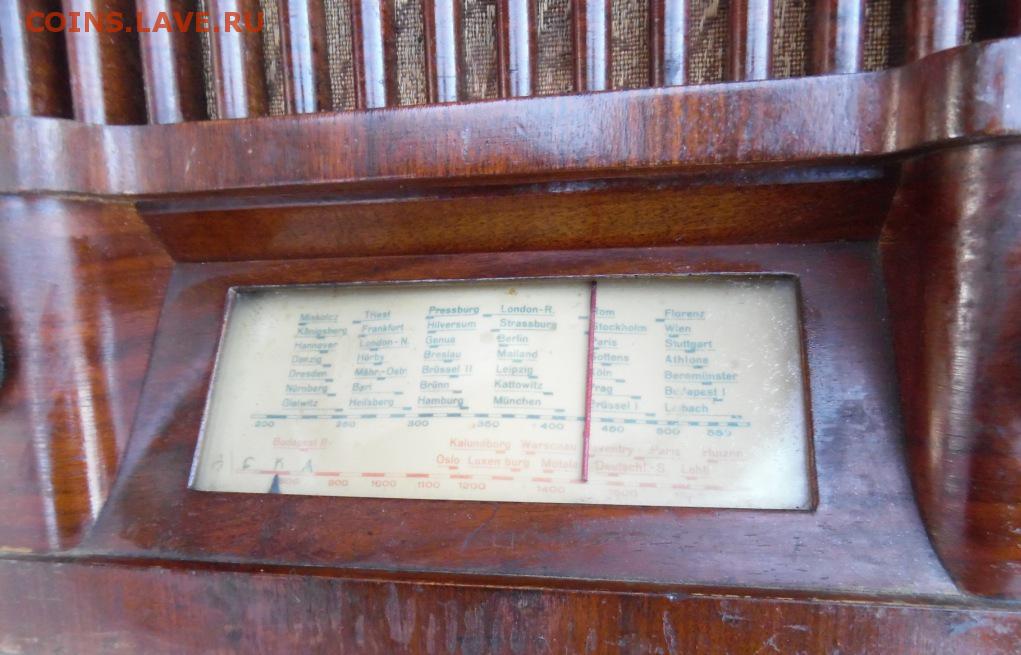 COINS.LAVE.RU
Miskolcz Triest Pressburg London-R. Rom Florenz
Königsberg Frankfurt Hilversum Strassburg Stockholm Wien
Hannover London-N. Genua Berlin Paris Stuttgart
Danzig Hörby Breslau Mailand Sottens Athlone
Dresden Mähr.-Ostr. Brüssel II Leipzig Köln Beromünster
Nürnberg Bari Brünn Kattowitz Prag Budapest I
Gleiwitz Heilsberg Hamburg München Brüssel I Laibach
200 250 300 350 400 450 500 550
Budapest II Kalundborg Warschau Daventry Paris Huizen
Oslo Luxemburg Motala Deutschl.-S. Lahti
800 900 1000 1100 1200 1400